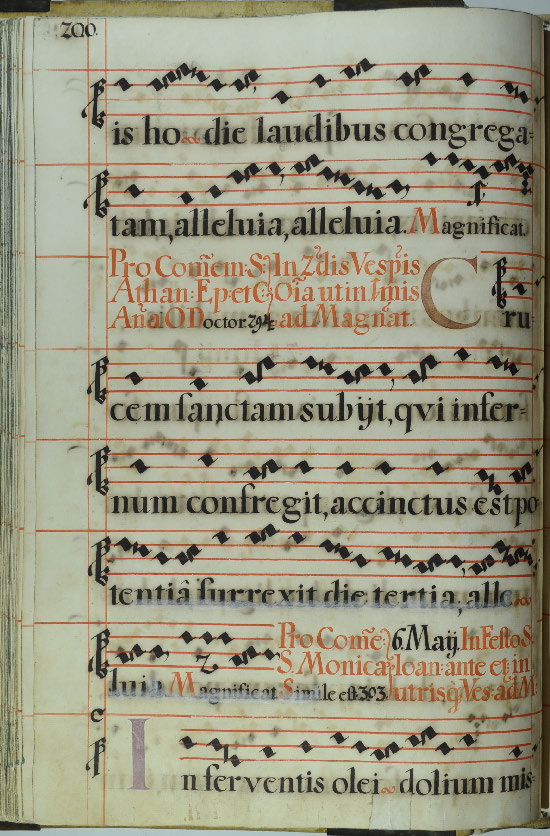 200.
is ho die laudibus congrega=
tam, alleluia, alleluia. Magnificat.
Pro Com̃em: S: In 2.dis Vesp̃is
Athan: Ep: et Oĩa ut in
Añai O D octor 294 ad Magñat.
Cru=
cem sanctam subijt, qvi infer=
num confregit, accinctus est po
tentiâ surrexit die tertia, alle
luia. Magnificat Simile est 303
Pro Com̃e: 6. Maij. In Festo S.
S. Monicæ Ioan: ante et in
utrisq̃ Ves: ad M:
In ferventis olei dolium mis=